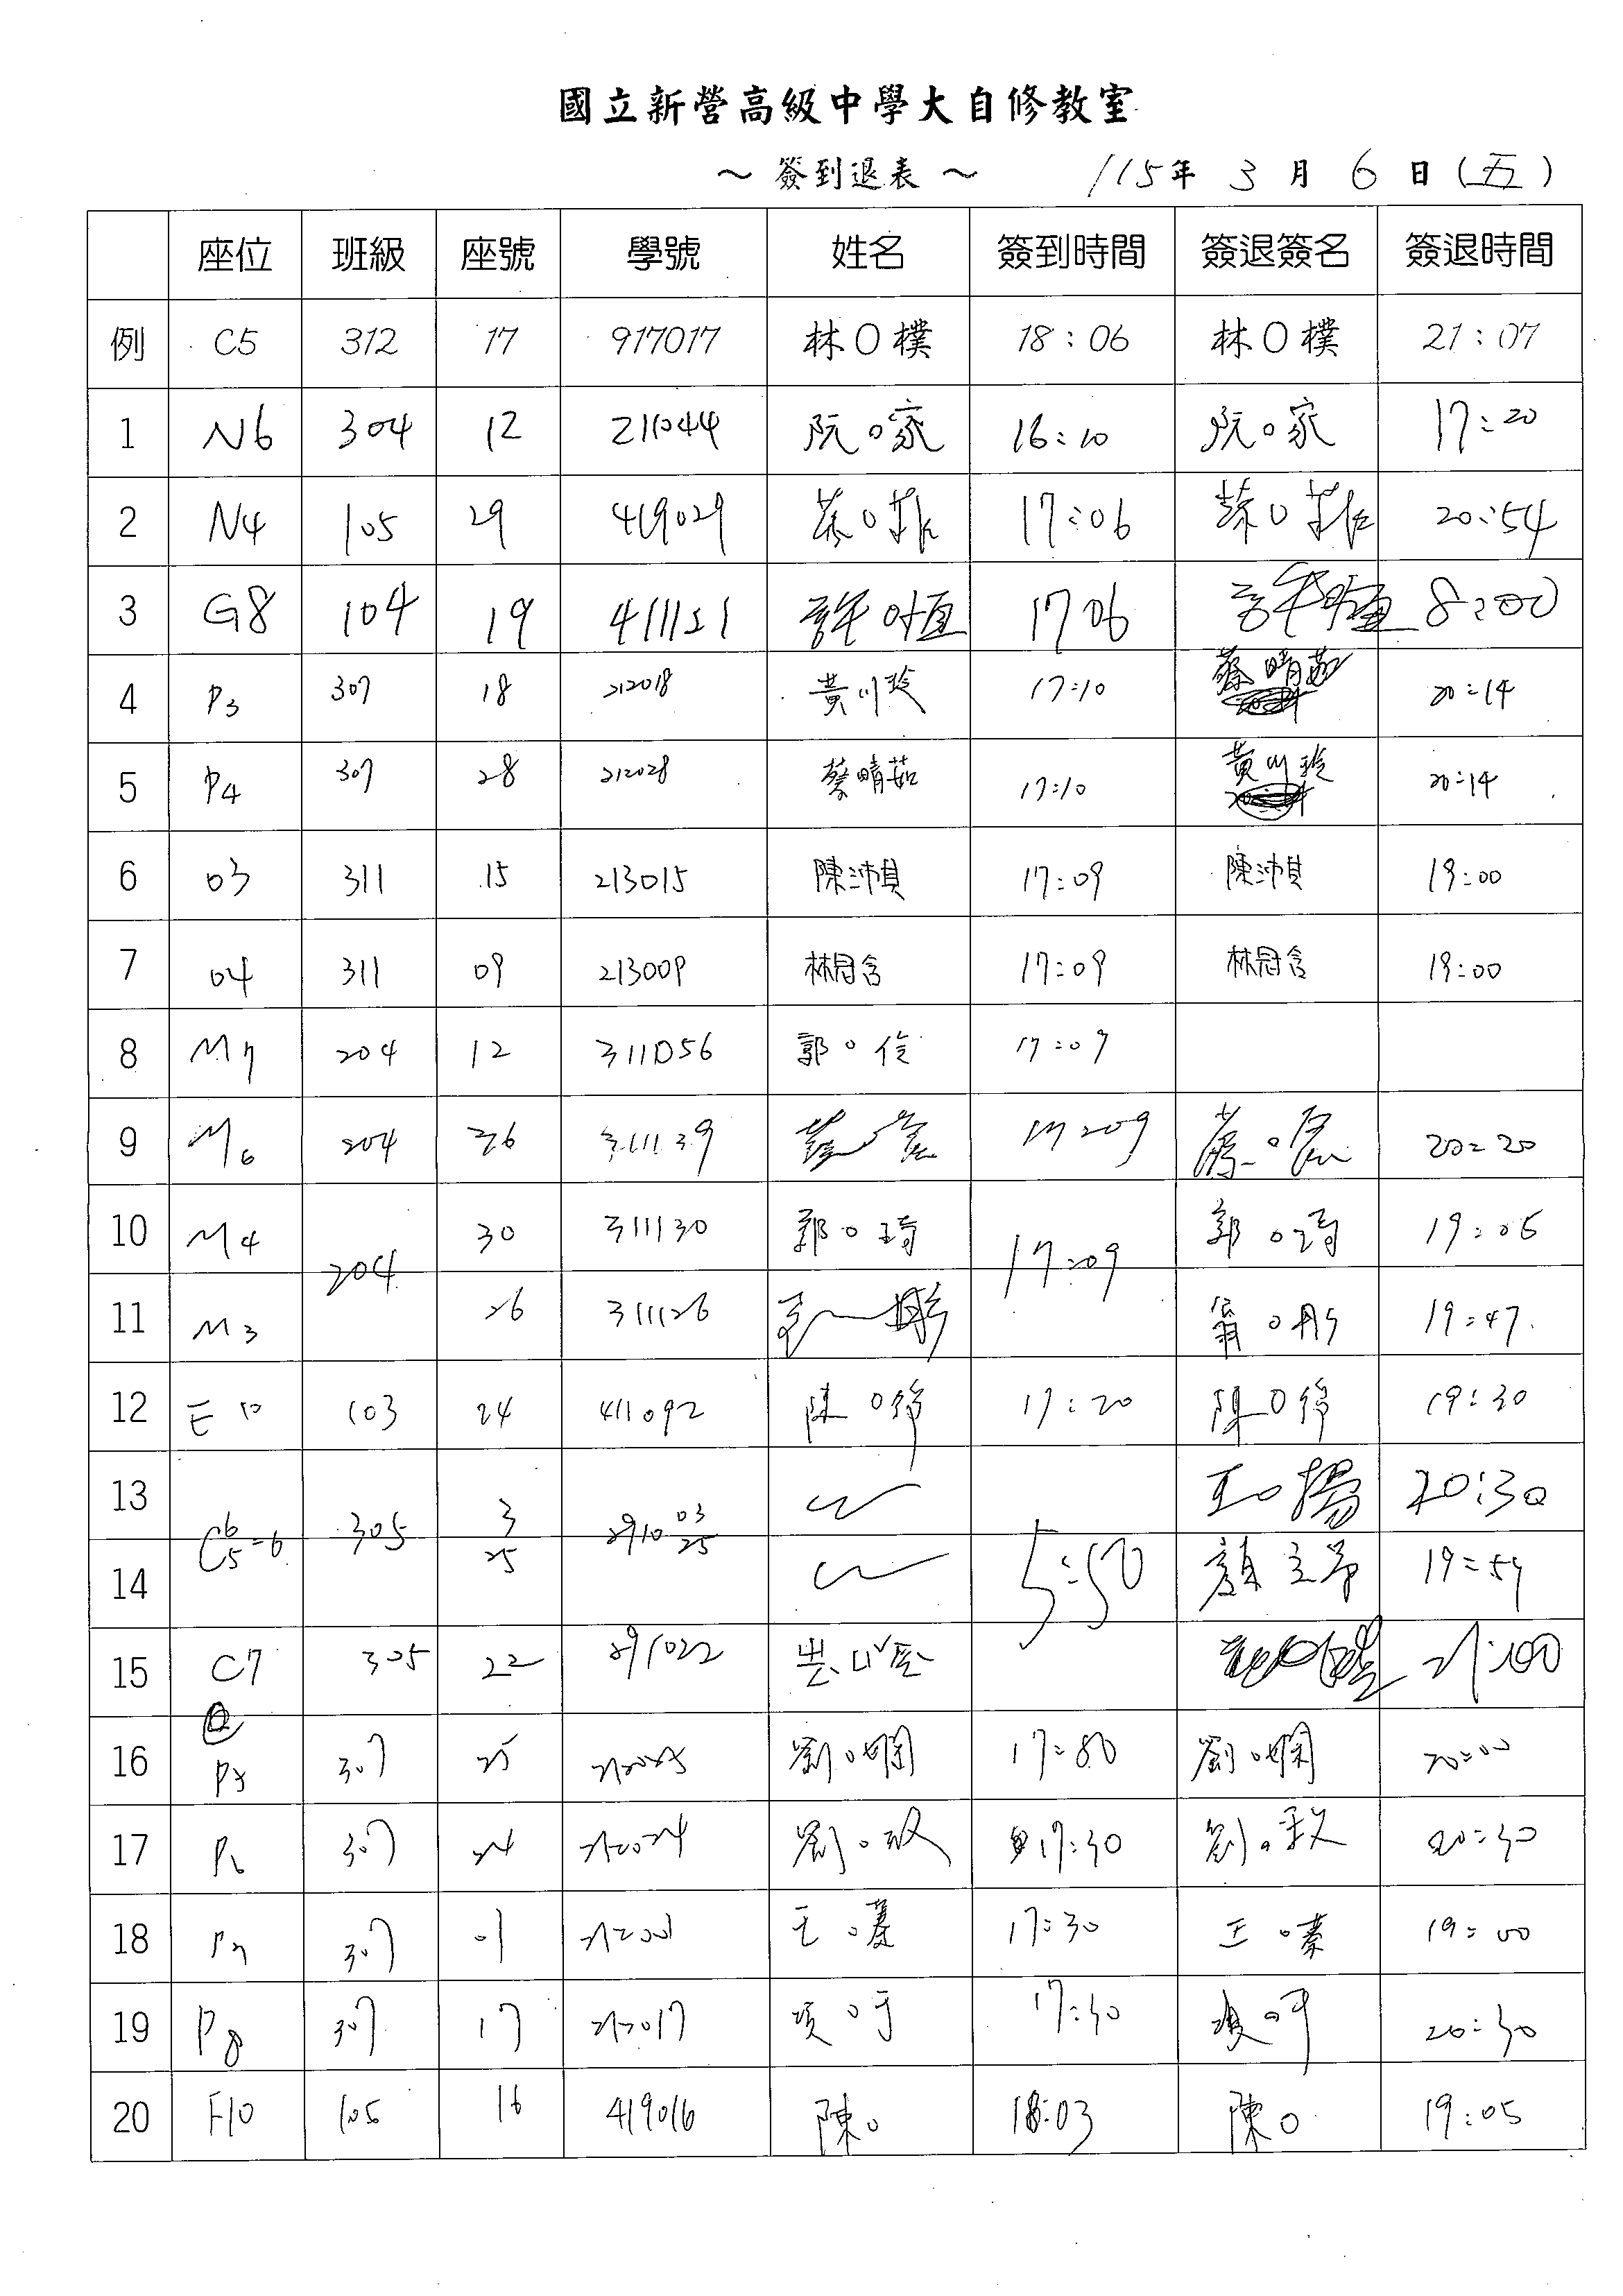 國立新營高級中學大自修教室
～ 簽到退表 ～ 115年 3 月 6 日 (五)
座位 班級 座號 學號 姓名 簽到時間 簽退簽名 簽退時間
例 C5 312 17 917017 林O樸 18:06 林O樸 21:07
1 N6 304 12 211044 阮O家 16:10 阮O家 17:20
2 N4 105 29 419029 17:06 20:54
3 G8 104 19 411151 許O植 1706 8:00
4 P3 307 18 212018 黃川玲 17:10 蔡晴茹 20:14
5 P4 307 28 212028 蔡晴茹 17:10 黃川玲 20:14
6 03 311 15 213015 陳沛萁 17:09 陳沛萁 19:00
7 04 311 09 213009 林冠含 17:09 林冠含 19:00
8 M7 204 12 311056 郭O伶 17:09
9 M6 204 36 311139 17:09 20:20
10 M4 204 30 311130 郭O琦 17:09 郭O琦 19:06
11 M3 26 311126 翁O彤 19:47
12 E10 103 24 411092 陳O錚 17:20 陳O錚 19:30
13 305 3 03 王O揚 20:30
14 25 25 5:50 顏立帛 19:59
15 C7 305 22 21:00
16 307 25 劉O嫻 劉O嫻 20:00
17 307 24 劉O玟 17:30 20:30
18 P7 307 01 王O蓁 17:30 王O蓁 19:00
19 P8 307 17 17:30 20:30
20 F10 105 16 419016 陳O 18:03 陳O 19:05